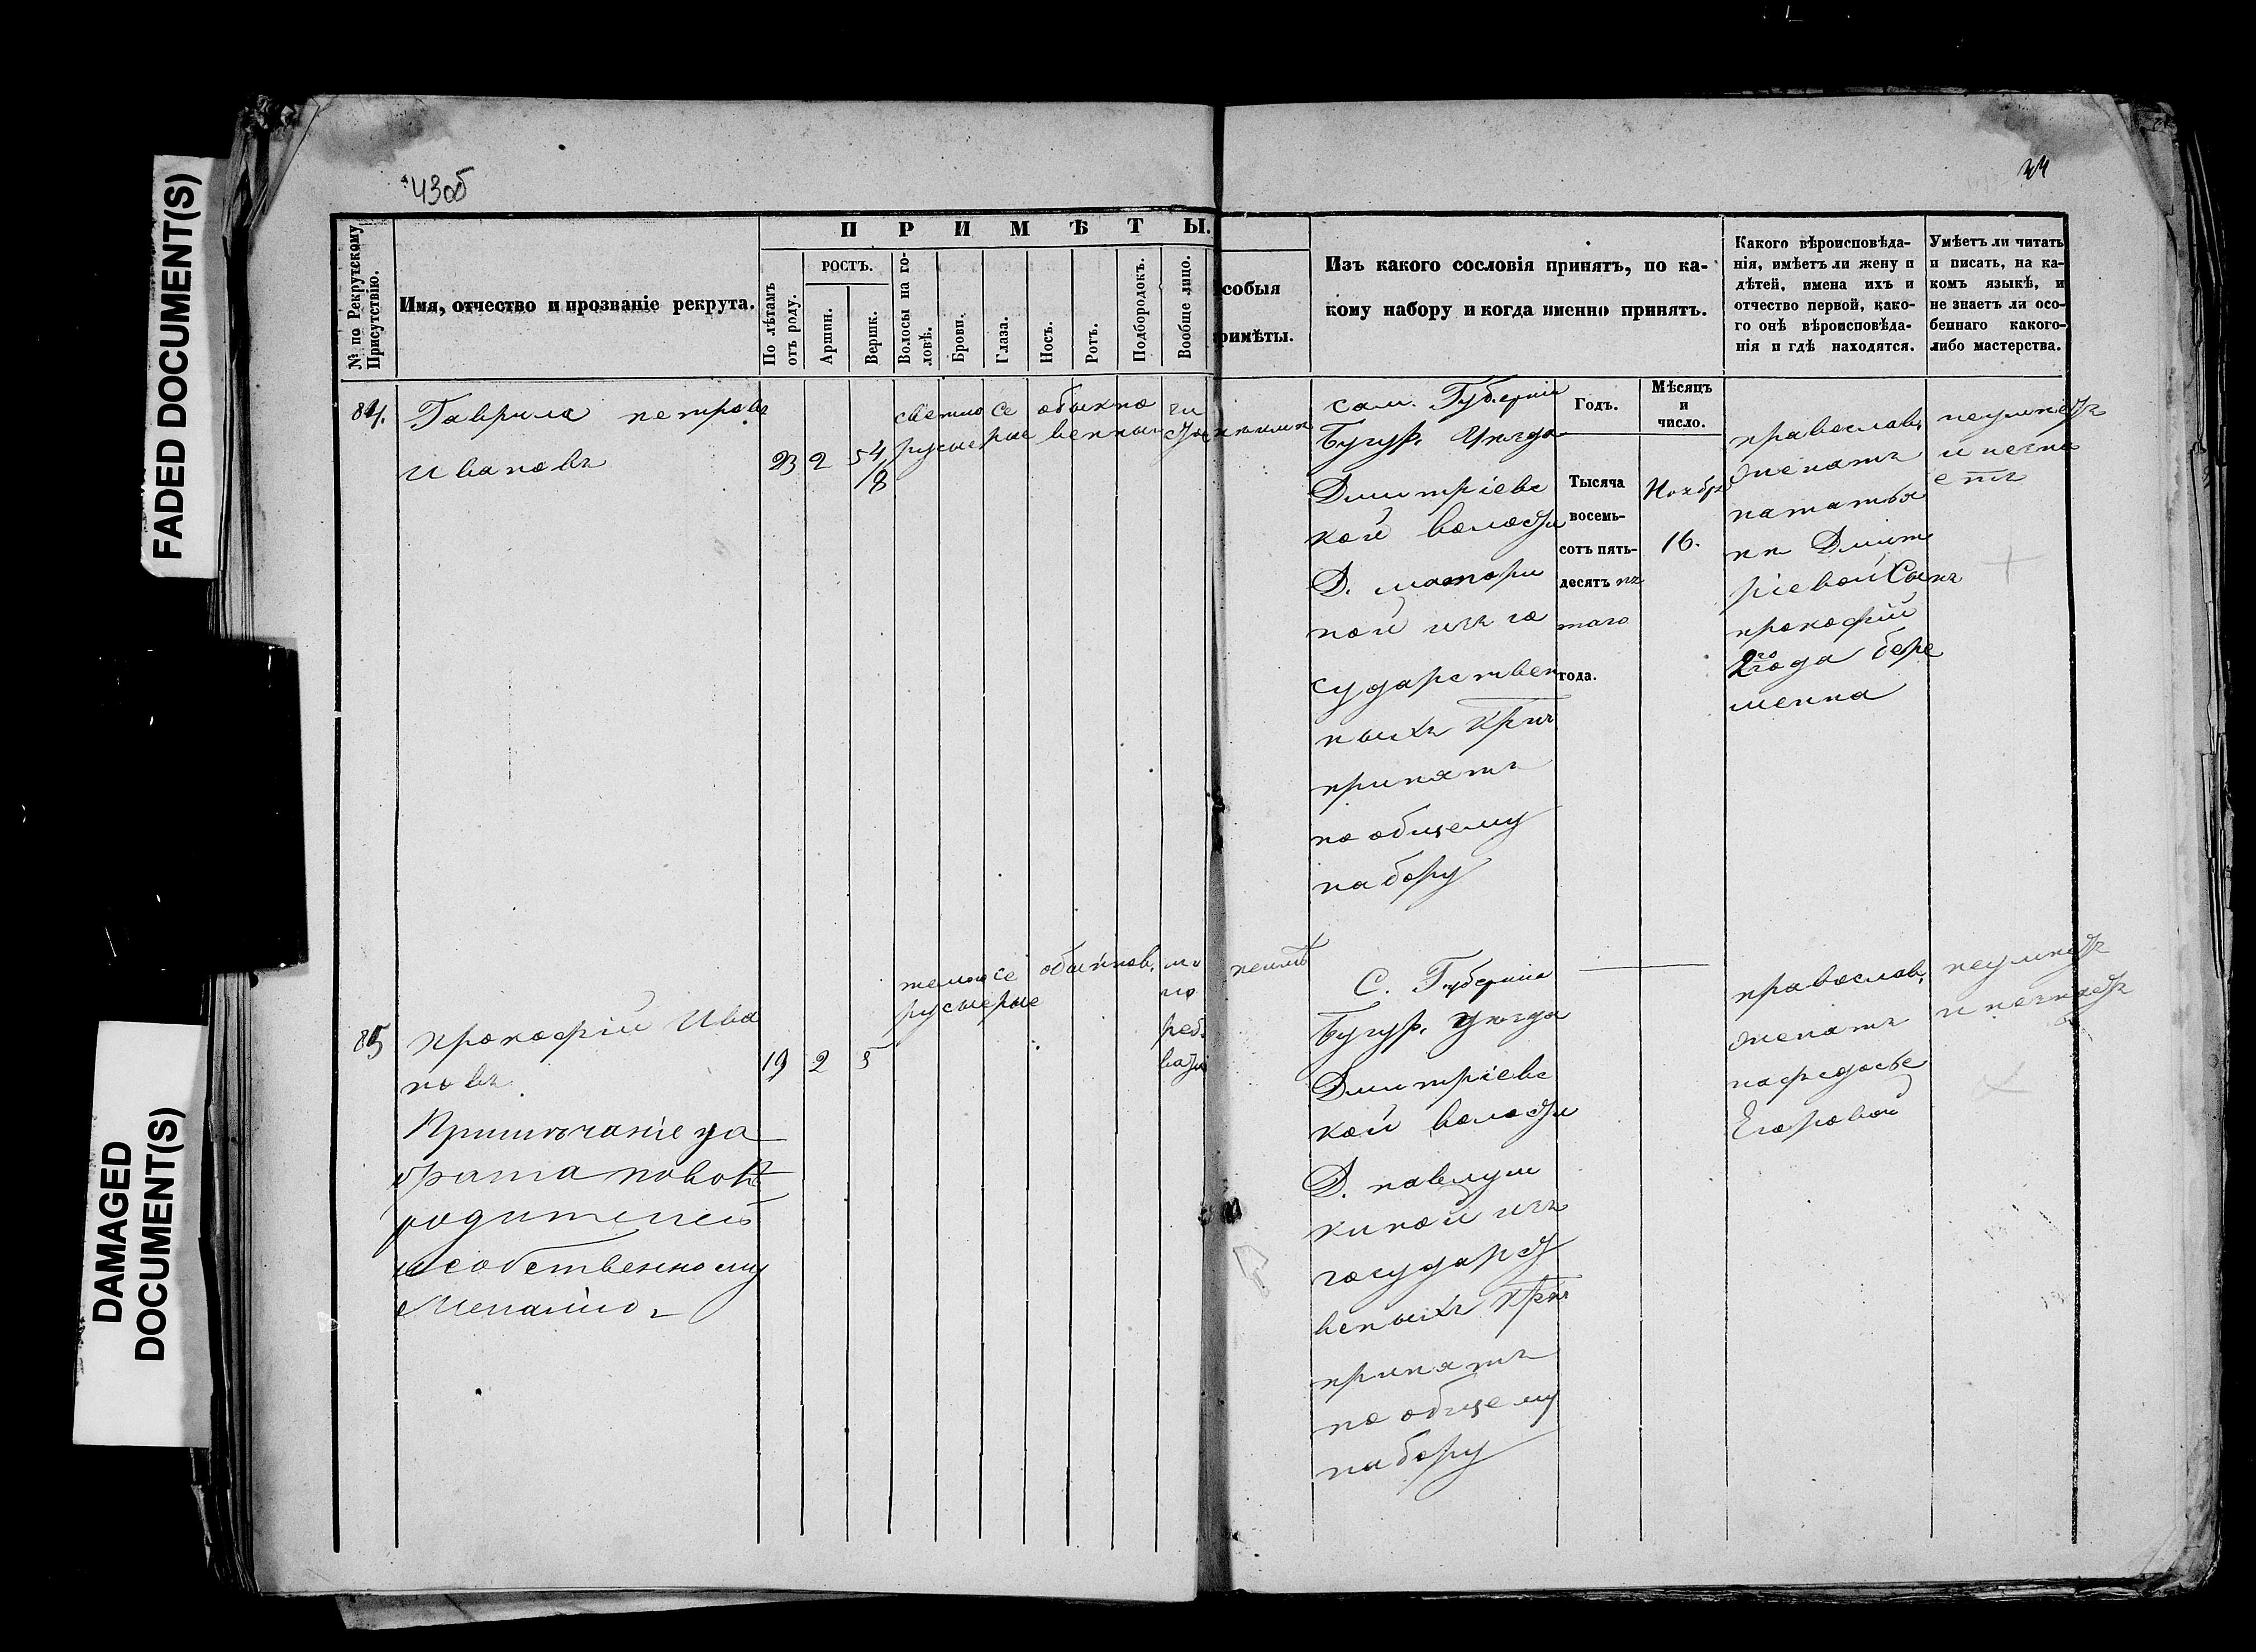 FADED DOCUMENT(S)
DAMAGED
DOCUMENT(S)
43об
44
№ по Рекрутскому
Присутствію.
Имя, отчество и прозваніе рекрута.
ПРИМѢТЫ.
По лѣтамъ
отъ роду.
РОСТЪ.
Аршин.
Вершк.
Волосы на го-
ловѣ.
Брови.
Глаза.
Носъ.
Ротъ.
Подбородокъ.
Вообще лицо.
собыя
римѣты.
Изъ какого сословія принятъ, по ка-
кому набору и когда именно принятъ.
Какого вѣроисповѣда-
нія, имѣетъ ли жену и
дѣтей, имена ихъ и
отчество первой, како-
го онѣ вѣроисповѣда-
нія и гдѣ находятся.
Умѣетъ ли читать
и писать, на ка-
комъ языкѣ, и
не знаетъ ли осо-
беннаго какого-
либо мастерства.
84.
Гаврила петровъ
Ивановъ
23 2 5 4/8
светло
русые
се
рые
обыкно
венный
чи
стое
сам. Губерніи
Бугур. Уѣзда
Дмитріевс
кой волости
Д. матори
ной изъ го
сударствен
ныхъ Кр
принятъ
по общему
набору
Годъ.
Тысяча
восемь-
сотъ пять-
десятъ пя
таго
года.
Мѣсяцъ
и
число.
Ноябр
16.
православ,
женатъ
наталья
Дмит
ріевой Сынъ
прокофій
2го года бере
менна
неумѣетъ
и незна
етъ
85
прокофій Ива
новъ
Примѣчаніе за
брата по воле
родителей
и собственному
желанію
19 2 5
темно
русые
се
рые
обыкнов,
ще
ват
неимѣ
С. Губерніи
Бугур. Уѣзда
Дмитріевс
кой волости
Д. павлуш
киной изъ
государст
венныхъ Кр
принятъ
по общему
набору
православ,
женатъ
нафедосье
Егоровой
неумѣетъ
и незнаетъ